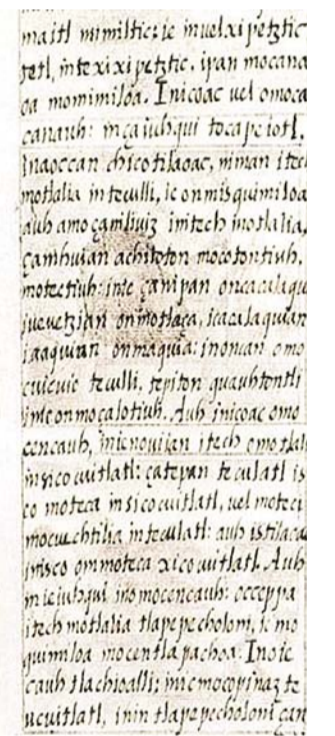 maitl mimiltic: ic in vel xipetztic
tetl, in texixipetztic, ipan mocana
oa momimiloa. Inicoac vel omoca
canauh: in ça iuhqui tocapeiotl.
Inaoccan chicotilaoac, niman itech
motlalia in teculli, ic onmisquimiloa
auh amo çaniliviz initech motlalia,
çamhuian achitoton mocotontiuh,
motectiuh: inic çan ipan oncacalaqui
ivevetzian onmotlaça, icacalaquian
iaaquian onmaquia: inoncan omo
cuicuic teculli, tepiton quauhtontli
inic onmocalotiuh. Auh inicoac omo
cencauh, inic novijan itech omotlali
in xicocuitlatl: çatepan teculatl is
co moteca in xicocuitlatl, vel moteci
mocuechtilia in teculatl: auh istilaoac
inisco ommoteca xicocuitlatl. Auh
in ie iuhqui in omocencauh: occeppa
itech motlalia tlapepecholoni, ic mo
quimiloa mocentlapachoa. In oie
cauh tlachioalli; inic mocopinaz te
ucuitlatl, inin tlapepecholoni çan